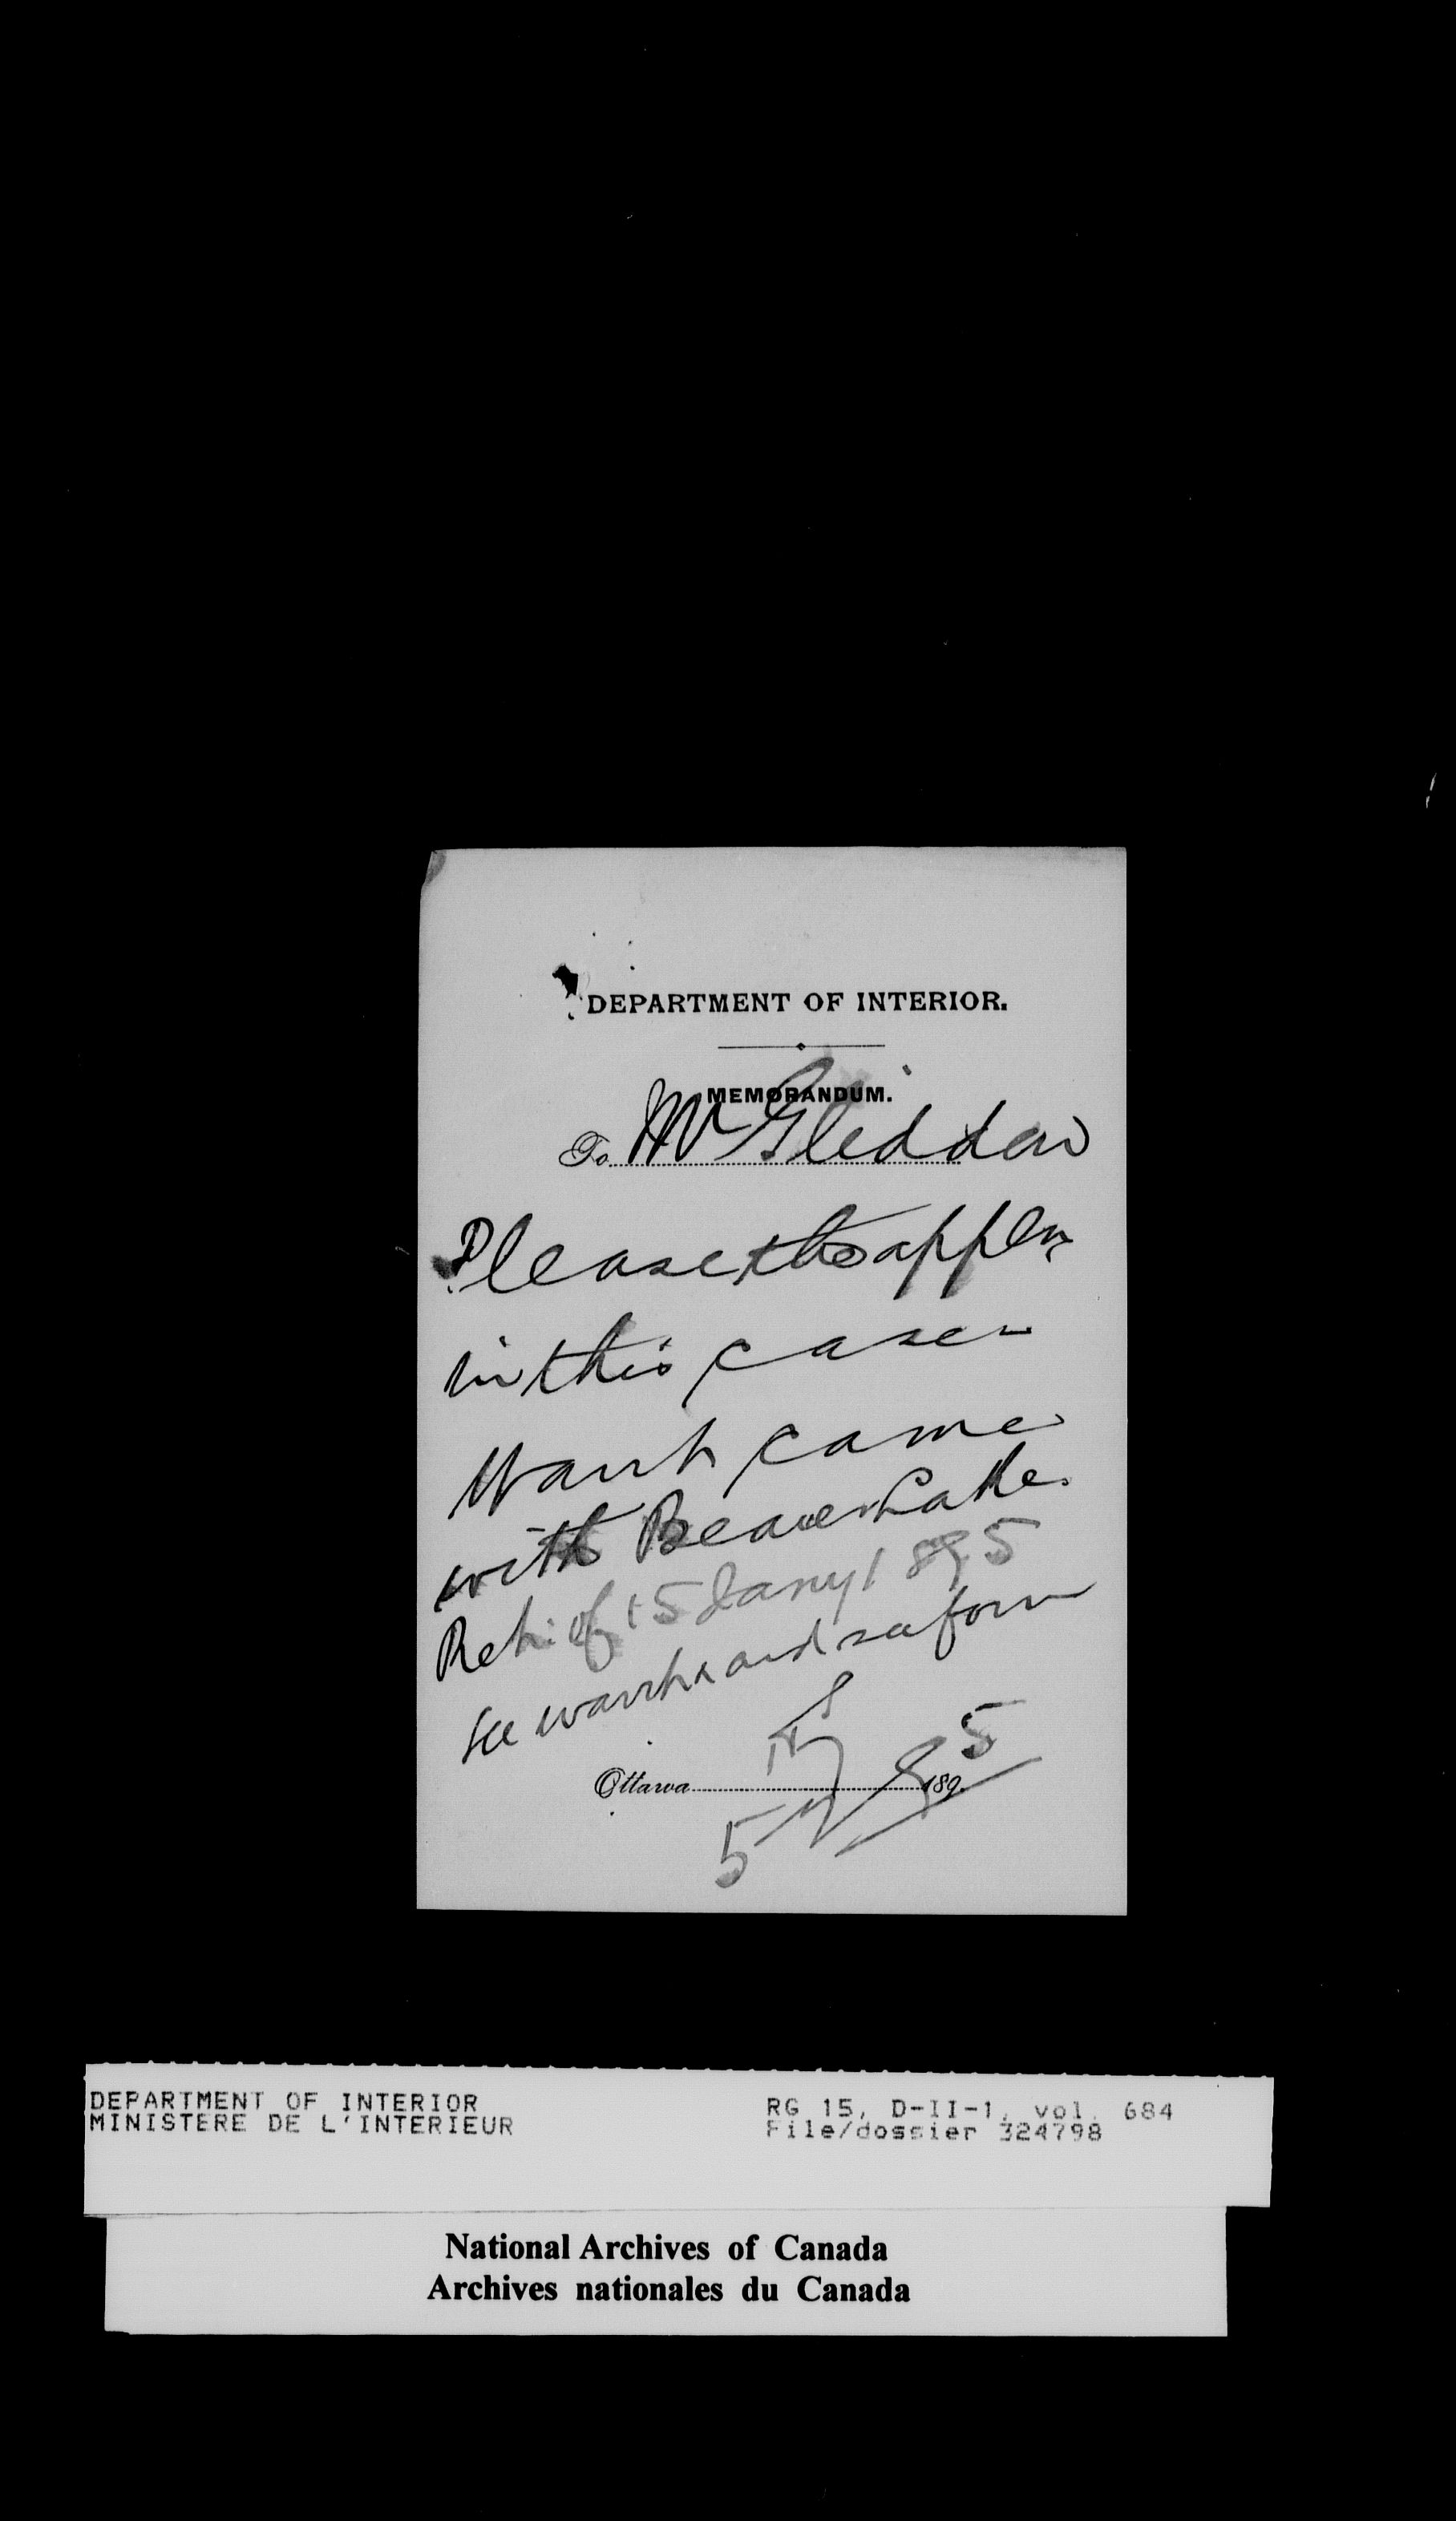 DEPARTMENT OF INTERIOR.
MEMORANDUM.
To Mr Gliddon
Please the appln
in this case
Warrt came
with Beaver Lake
Ret. of 15 Jany 1895
see warrts and
Ottawa 189 5
DEPARTMENT OF INTERIOR RG 15, D-II-1, vol. 684
MINISTERE DE L'INTERIEUR File/dossier 324798
National Archives of Canada
Archives nationales du Canada